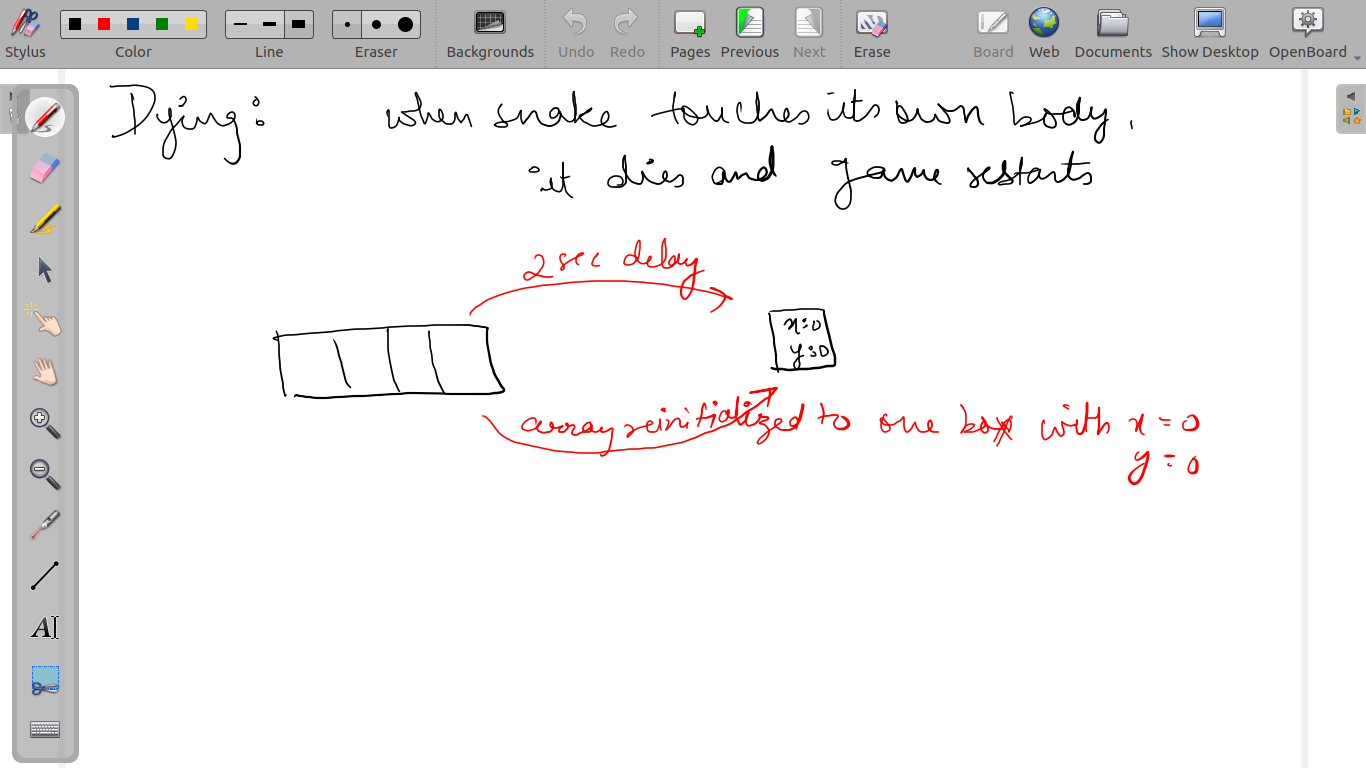 Stylus Color Line Eraser Backgrounds Undo Redo Pages Previous Next Erase Board Web Documents Show Desktop OpenBoard
Dying: when snake touches its own body.
it dies and game restarts
2 sec delay
x=0
y=0
array reinitialized to one box with x=0
y=0
A